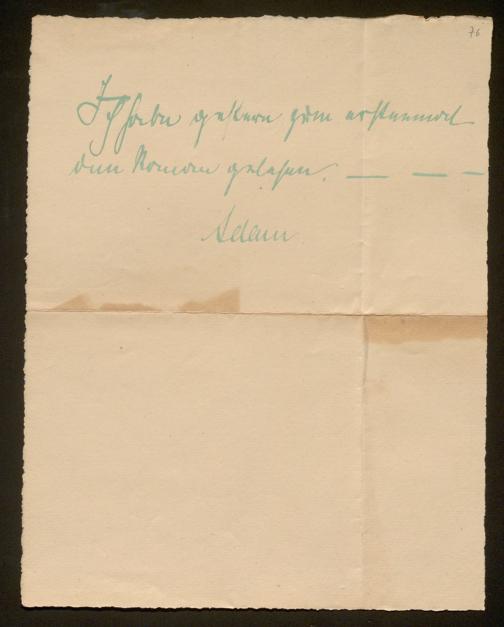 76
Ich habe gestern zum erstenmal
den Roman gelesen. — — —
Adam